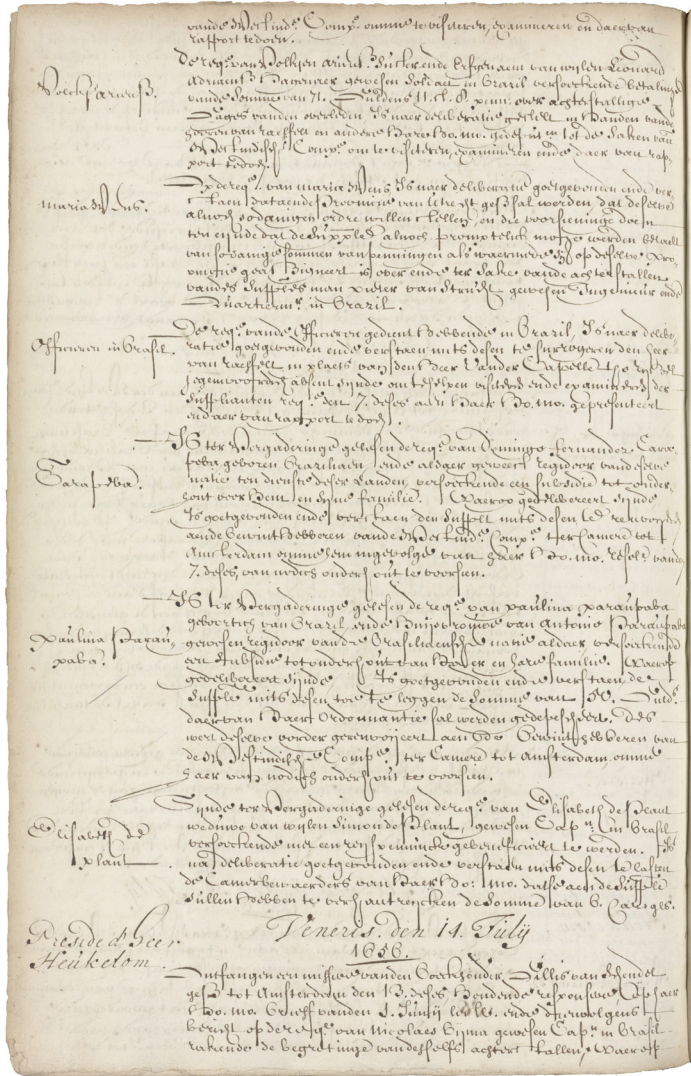 vande Westind. Comp. omme te visiteren, examineren en daer van
rapport te doen.
Volckje ariens.
De req. van Volkjen ariens. Suckende Erfgenaem van wylen Leonard
Adriaens Hagenaer gewesen Soldaet in Brazil versoeckende betalinge
vande Somme van 71. Guldens 11. st. 8. penn. over achterstallige
Gages vanden overleden. Is naer deliberatie gestelt in handen vande
heeren van raesfelt en andere Hare Ho. Mo. gedep. tot de Saken vande
Westindische Comp. om te visiteren, examineren ende daer van rap-
port te doen.
maria Wens.
Op de req. van maria Wens Is naer deliberatie goetgevonden ende ver-
staen dat aende Provincie van Utrecht gesz sal werden dat deselve
alnoch sodanigen ordre willen stellen, en die voorsieninge doen
ten eynde dat de Supplte alnoch promptelijck mogte werden betaelt
van sodanige sommen van penningen als waermede op deselve Pro-
vincie geassigneert is over ende ter Sake vande achterstallen
vandes Supplts man pieter van Struch gewesen Ingenieur ende
Quartierm. in Brazil.
Officieren in Brasil.
De req. vande Officieren gedient hebbende in Brazil, Is naer delibe-
ratie goetgevonden ende verstaen mits desen te surrogeren den heer
van raesfelt in plaets van den heer vander Capelle tho
jegenwoordich absent synde om te helpen visiteren ende examineren der
Supplianten req. den 7. deses aen haer Ho. Mo. gepresenteert
ende daer van rapport te doen.
Carapeba.
Is ter Vergaderinge gelesen de req. van Domingo Fernandes Cara-
peba geboren Braziliaen ende aldaer geweest regidoor van deselve
natie ten dienste deser Landen, versoeckende een subsidie tot onder-
hout voor hem en syne familie. Waerop gedelibereert synde
Is goetgevonden ende verstaen den Supplt mits desen te renvoyeren
aende bewinthebberen vande Westind. Comp. ter Camere tot
Amsterdam omme hem ingevolge van haer Ho. Mo. resolt. vanden
7. deses, van nodich onderhout te voorsien.
Paulina Parau-
paba.
Is ter Vergaderinge gelesen de req. van paulina paraupaba
geboortich van Brazil, ende Huijsvrouwe van Antonio Paraupaba
gewesen regidoor vande Brasiliaensche natie aldaer versoeckende
een Subsidie tot onderhout van haer en hare familie. Waerop
gedelibereert synde Is goetgevonden ende verstaen de
Supplte mits desen toe te leggen de Somme van 50. Guld.
daer van haer Ordonnantie sal werden gedepescheert. Des
wert deselve vorder gerenvoijeert aende Bewinthebberen van
de Westindische Compe. ter Camere tot Amsterdam omme
haer van nodich onderhout te voorsien.
Elisabeth de
plant.
Synde ter Vergaderinge gelesen de req. van Elisabeth de Plant
weduwe van wylen Simon de Plant, gewesen Capn. in Brasil
versoeckende met een reyspenninck gebeneficeert te werden. Is
na deliberatie goetgevonden ende verstaen mits desen te lasten
de Camerbewaerders van haer Ho: Mo. dat se aen de Supplte
Sullen hebben te verstrecken de Somme van 6. Car. gls.
Veneris. den 14. July
1656.
Preside d'heer
Heukelom.
Ontfangen een missive vanden boeckhouder, Gillis van Schendel
gesz tot Amsterdam den 13. deses houdende responsive op haer
Ho. Mo. brieff vanden 1. Junij lestl. ende dienvolgens
bericht op de req. van Nicolaes Byma gewesen Capn. in Brasil
rakende de begrotinge van desselfs achterstallen, Waerop